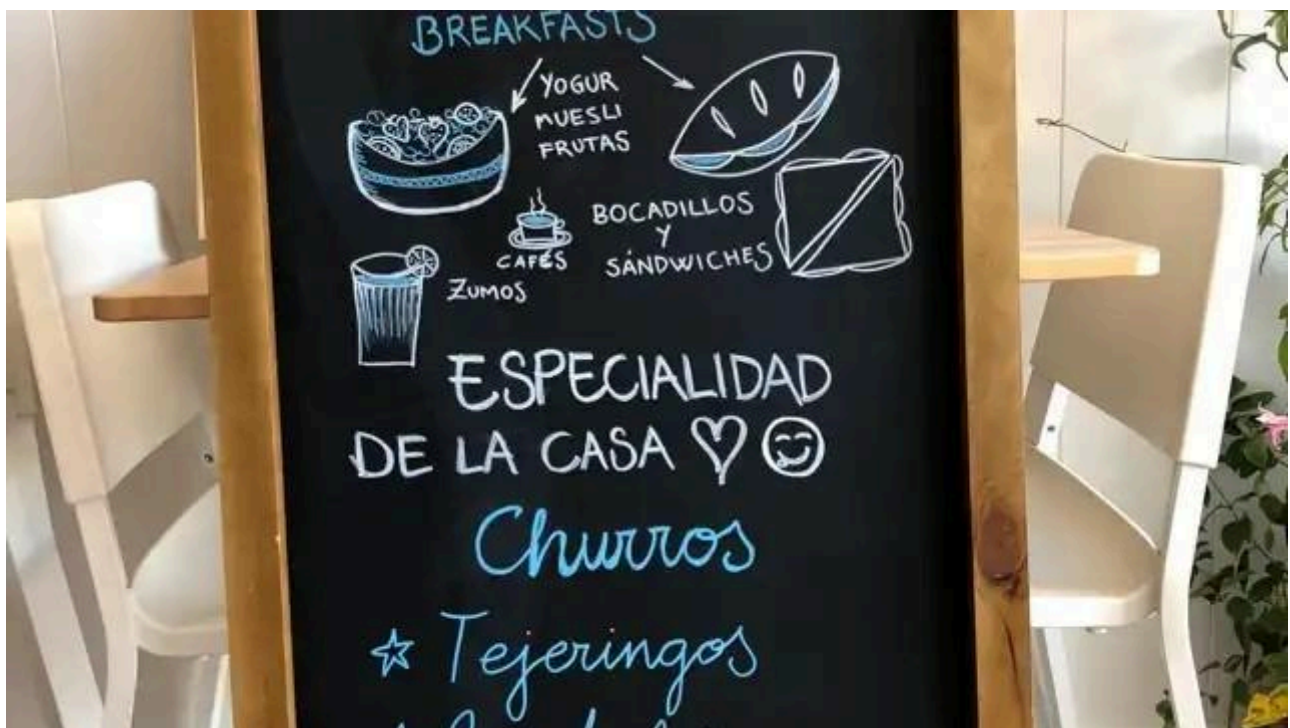 BREAKFASTS
YOGUR
MUESLI
FRUTAS
BOCADILLOS
Y
SÁNDWICHES
CAFÉS
ZUMOS
ESPECIALIDAD
DE LA CASA
Churros
Tejeringos